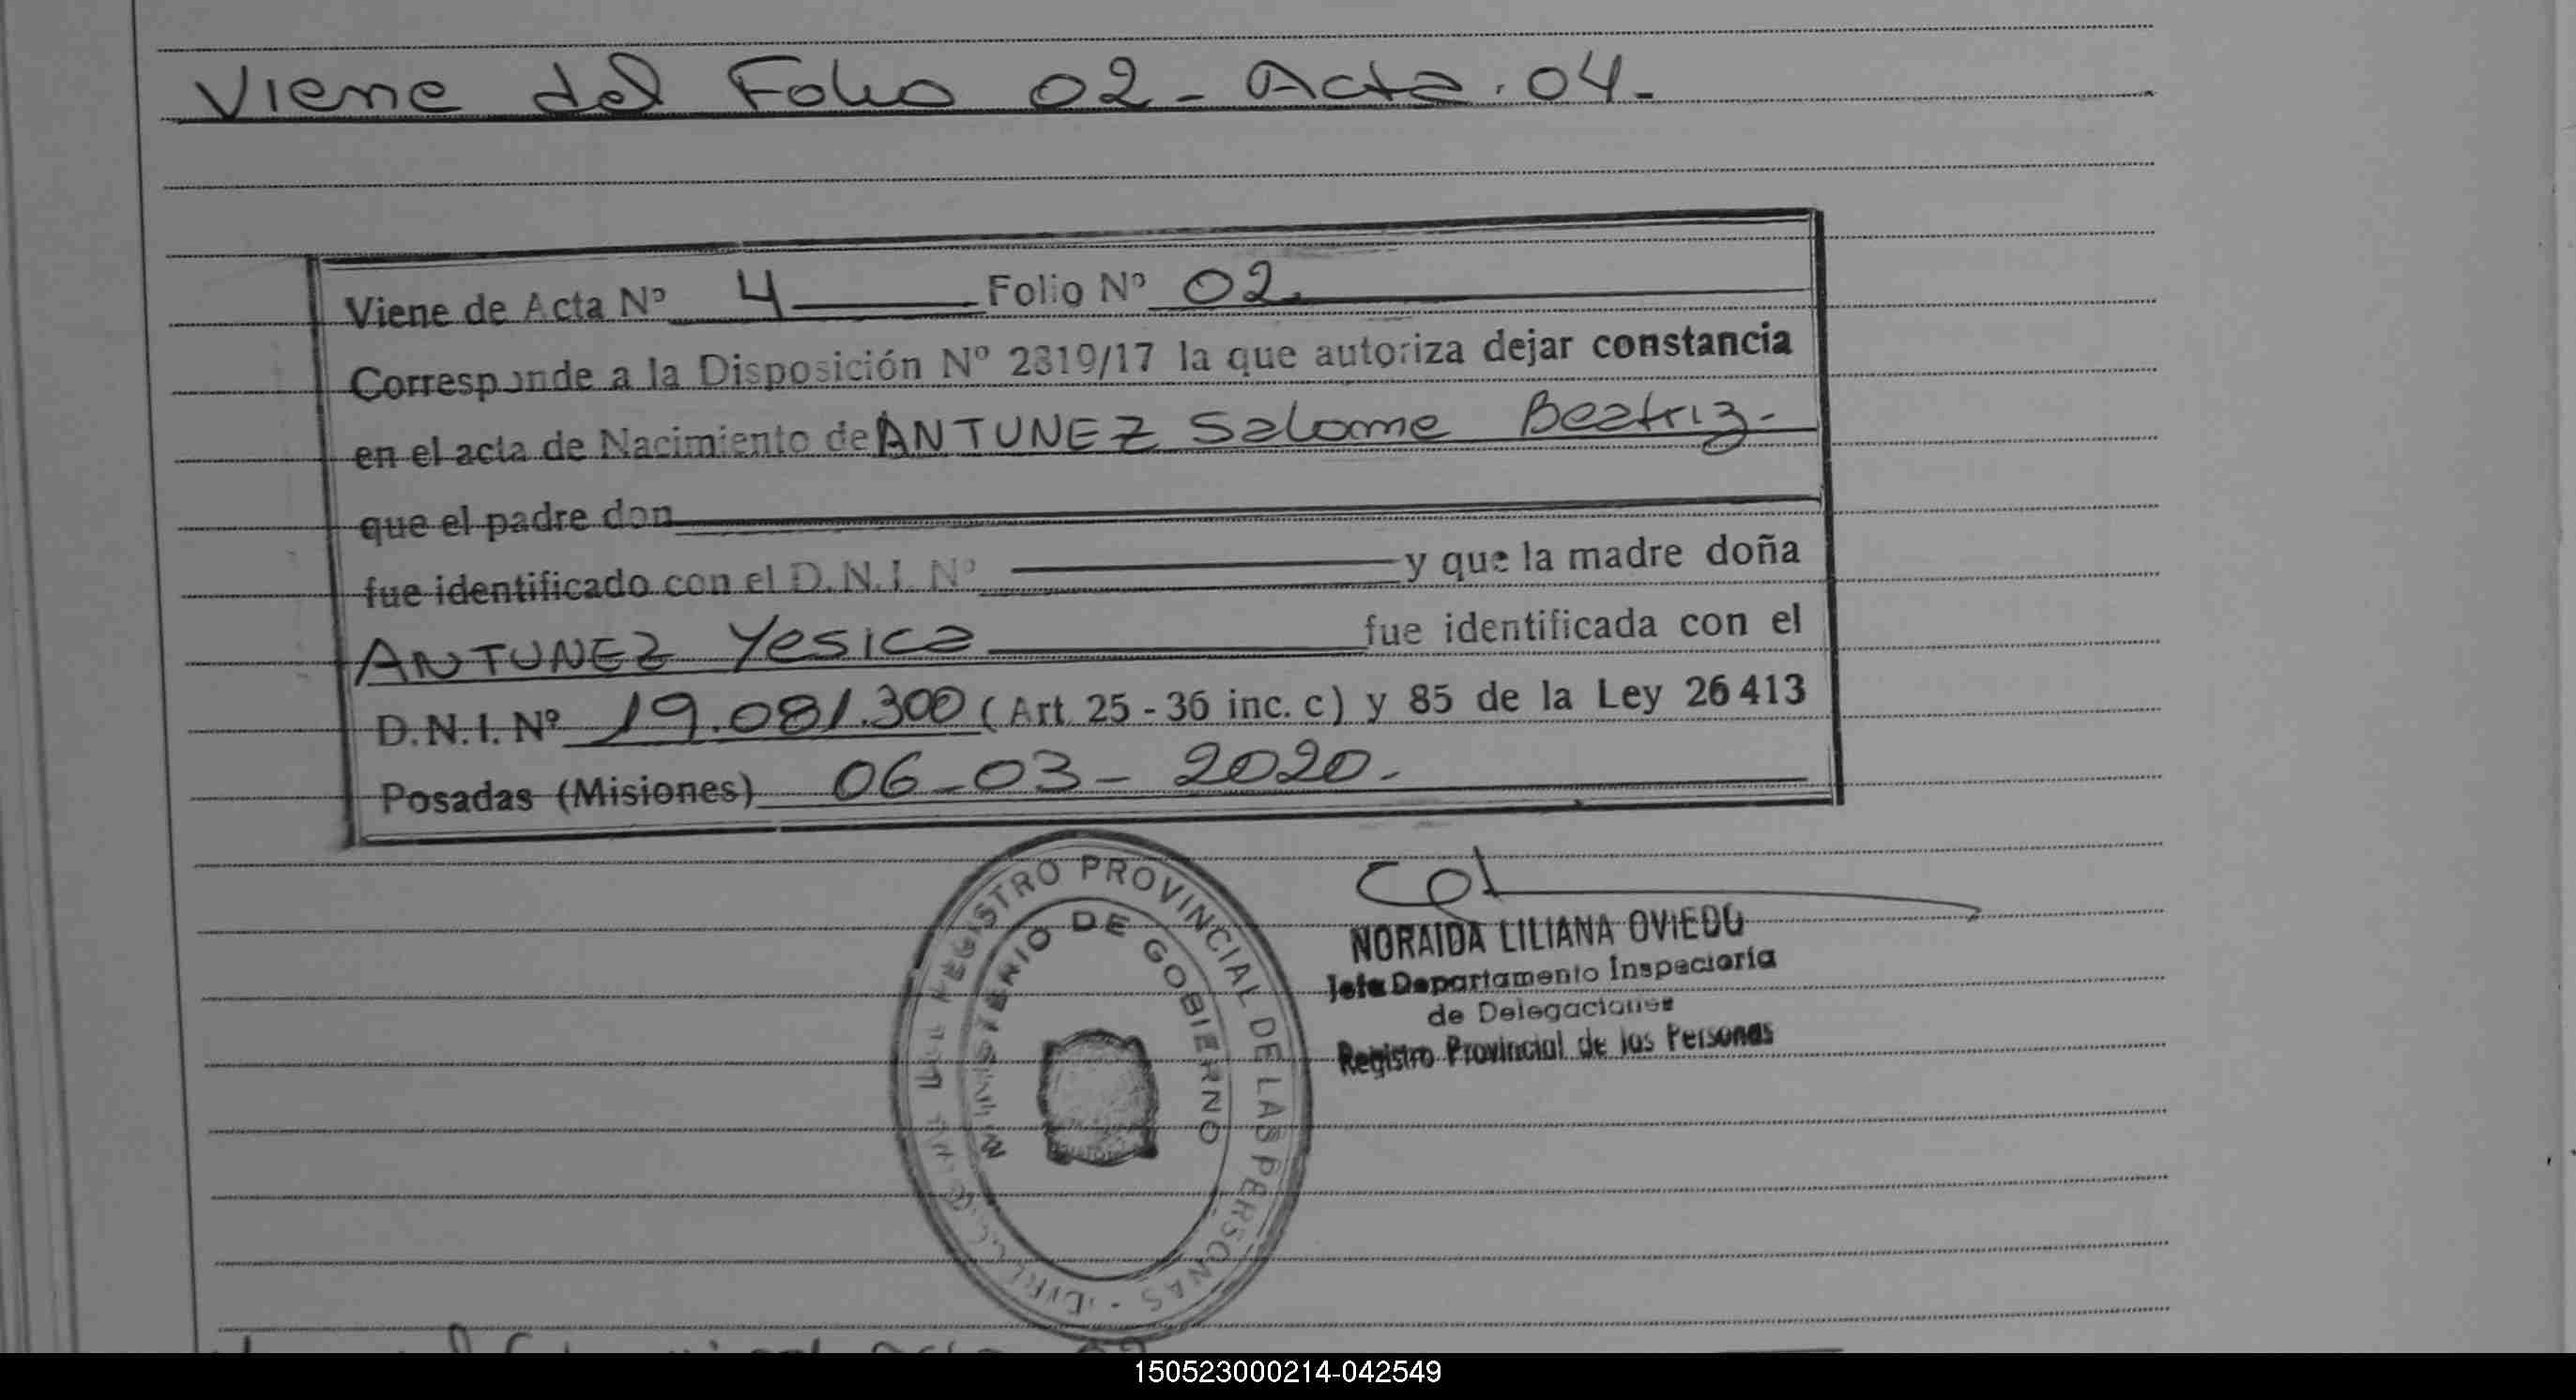 Viene del Folio 02 - Acta. 04.-
Viene de Acta Nº 4 Folio Nº 02.
Corresponde a la Disposición Nº 2319/17 la que autoriza dejar constancia
en el acta de Nacimiento de ANTUNEZ Salome Beatriz.-
que el padre don
fue identificado con el D.N.I. Nº y que la madre doña
ANTUNEZ Yesica fue identificada con el
D.N.I. Nº 19.081.300 (Art. 25 - 36 inc. c) y 85 de la Ley 26 413
Posadas (Misiones) 06-03-2020.-
REGISTRO PROVINCIAL DE LAS PERSONAS
MINISTERIO DE GOBIERNO
NORAIDA LILIANA OVIEDO
Jefa Departamento Inspectoría
de Delegaciones
Registro Provincial de las Personas
150523000214-042549